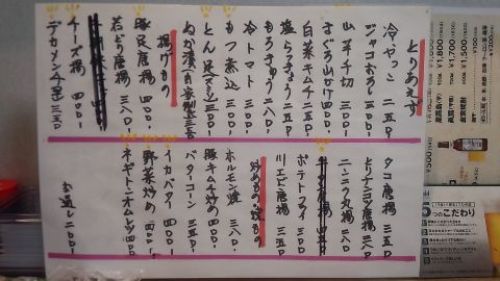 とりあえず
冷やっこ 二五〇
ジャコおろし 三五〇
山芋千切 三〇〇
まぐろ山かけ 四〇〇
白菜キムチ 二五〇
塩らっきょう 二五〇
もろきゅう 二八〇
冷トマト 三〇〇
もつ煮込 三〇〇
とん足
ぬか漬
揚げもの
豚足唐揚 四〇〇
若どり唐揚 三八〇
チーズ揚 四〇〇
デカメンチ 三五〇
タコ唐揚 三五〇
とりナンコツ唐揚 三八〇
ニンニク丸揚 三八〇
ポテトフライ 三〇〇
川エビ唐揚 三五〇
炒めもの・焼もの
ホルモン焼 三八〇
豚キムチ炒め 四〇〇
バターコーン 三五〇
イカバター 四〇〇
野菜炒め 四〇〇
ネギトンオムレツ 四〇〇
お通し 二〇〇
¥1,800
¥1,700
¥1,500
¥500
5つのこだわり